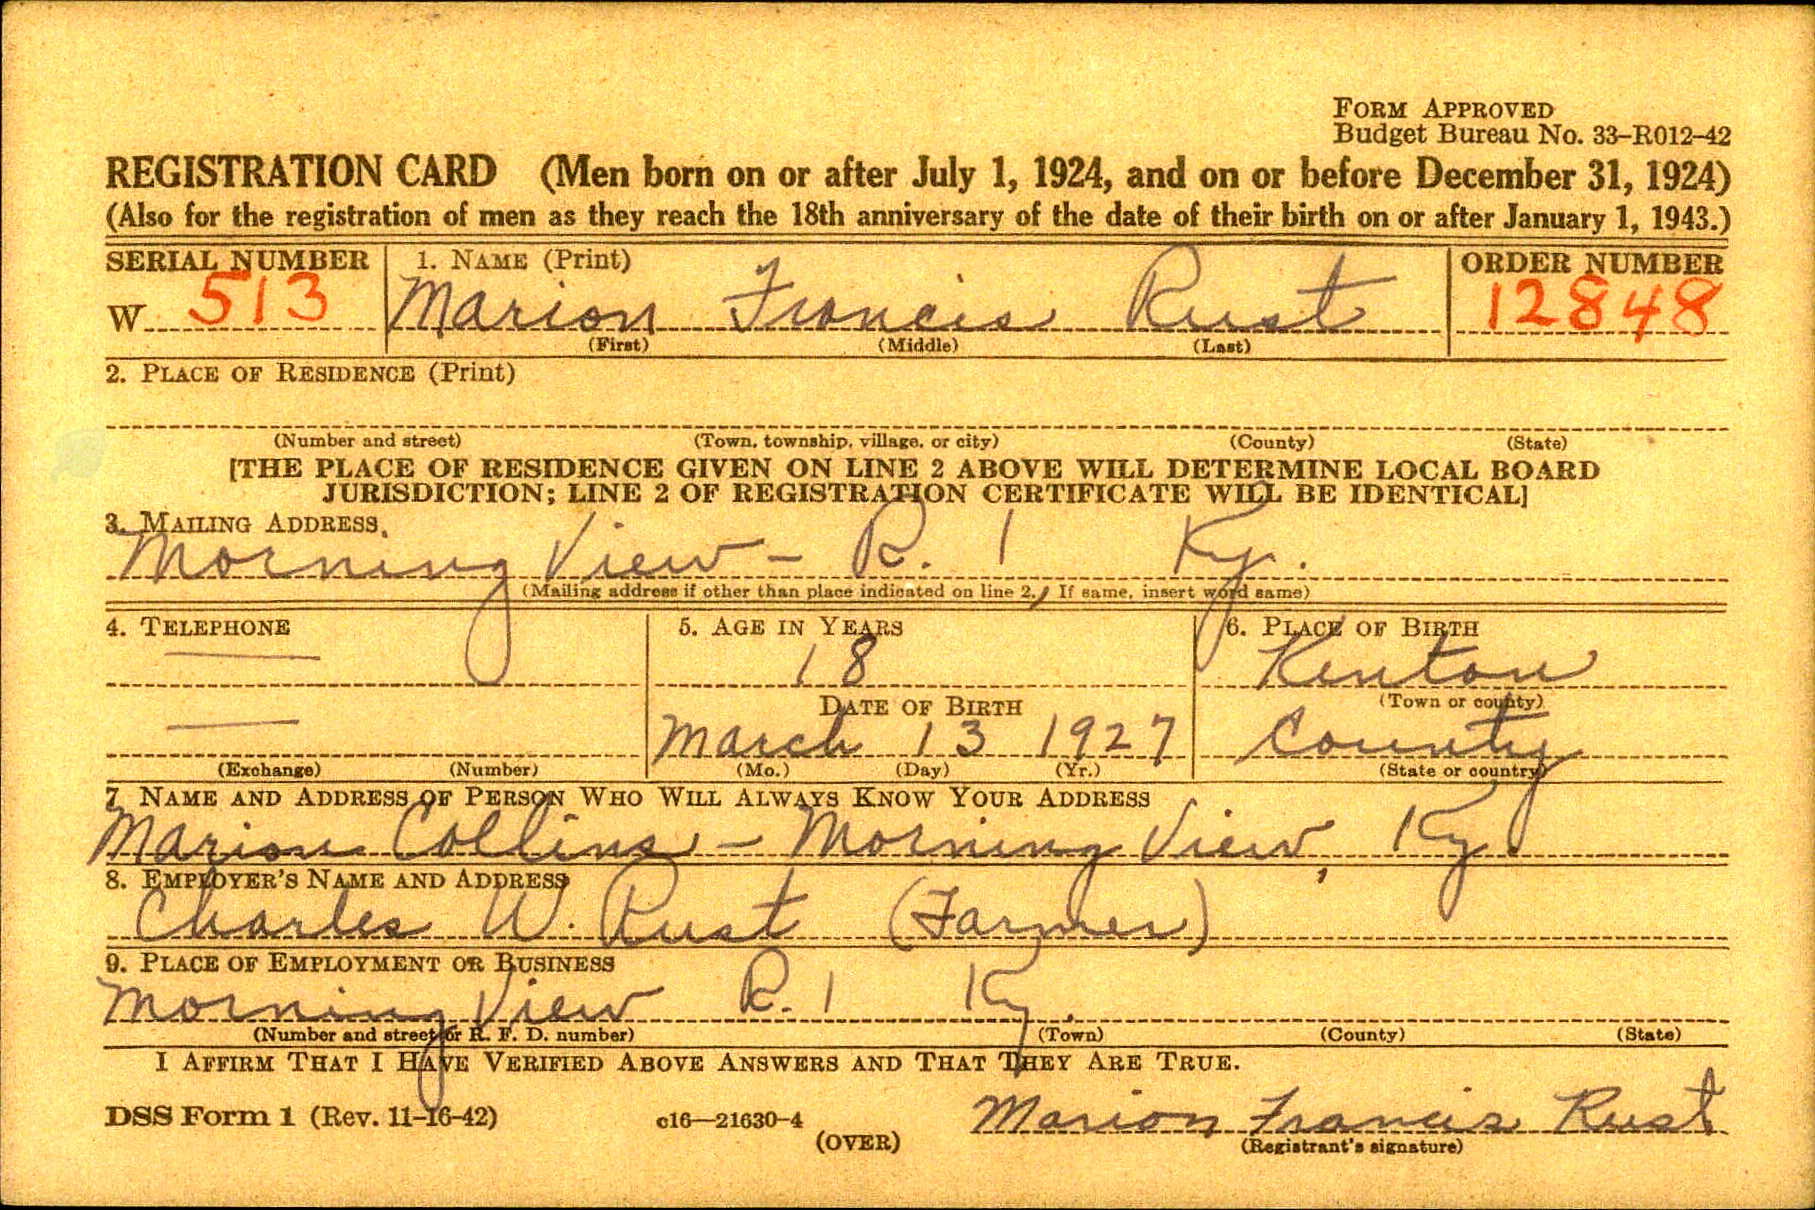 FORM APPROVED
Budget Bureau No. 33–R012–42
REGISTRATION CARD (Men born on or after July 1, 1924, and on or before December 31, 1924)
(Also for the registration of men as they reach the 18th anniversary of the date of their birth on or after January 1, 1943.)
SERIAL NUMBER 1. NAME (Print) ORDER NUMBER
W 513 Marion Francis Rust 12848
(First) (Middle) (Last)
2. PLACE OF RESIDENCE (Print)
(Number and street) (Town, township, village, or city) (County) (State)
[THE PLACE OF RESIDENCE GIVEN ON LINE 2 ABOVE WILL DETERMINE LOCAL BOARD
JURISDICTION; LINE 2 OF REGISTRATION CERTIFICATE WILL BE IDENTICAL]
3. MAILING ADDRESS
Morning View – R. 1 Ky.
(Mailing address if other than place indicated on line 2. If same, insert word same)
4. TELEPHONE 5. AGE IN YEARS 6. PLACE OF BIRTH
18 Kenton
DATE OF BIRTH (Town or county)
March 13 1927 County
(Exchange) (Number) (Mo.) (Day) (Yr.) (State or country)
7 NAME AND ADDRESS OF PERSON WHO WILL ALWAYS KNOW YOUR ADDRESS
Marion Collins – Morning View, Ky.
8. EMPLOYER'S NAME AND ADDRESS
Charles W. Rust (Farmer)
9. PLACE OF EMPLOYMENT OR BUSINESS
Morning View R. 1 Ky.
(Number and street or R. F. D. number) (Town) (County) (State)
I AFFIRM THAT I HAVE VERIFIED ABOVE ANSWERS AND THAT THEY ARE TRUE.
DSS Form 1 (Rev. 11–16–42) c16—21630–4 Marion Francis Rust
(OVER) (Registrant's signature)